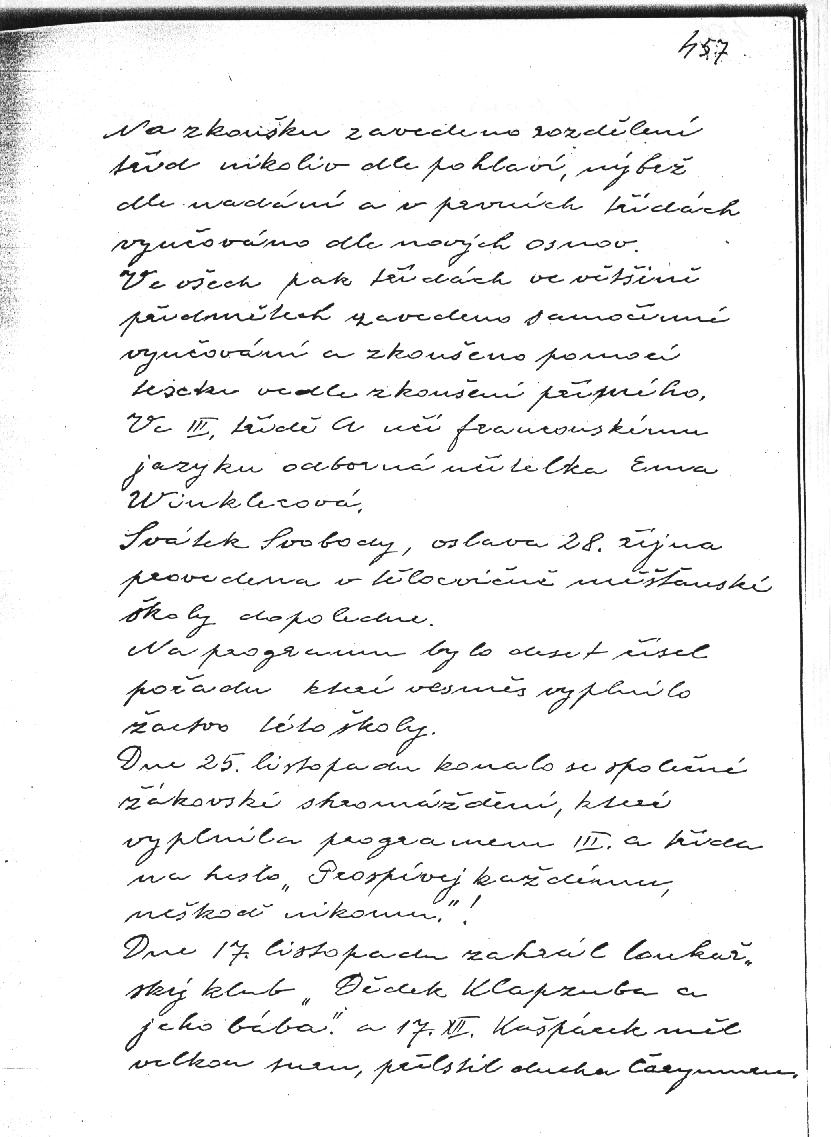 457
Na zkoušku zavedeno rozdělení
tříd nikoliv dle pohlaví, nýbrž
dle nadání a v prvních třídách
vyučováno dle nových osnov.
Ve všech pak třídách ve většině
předmětech zavedeno samočinné
vyučování a zkoušeno pomocí
testu vedle zkoušení přísného.
Ve III. třídě A učí francouzskému
jazyku odborná učitelka Ema
Winklerová.
Svátek Svobody, oslava 28. října
provedena v tělocvičně měšťanské
školy dopoledne.
Na programu bylo deset čísel
pořadu které vesměs vyplnilo
žactvo této školy.
Dne 25. listopadu konalo se společné
žákovské shromáždění, které
vyplnila programem III. a třída
na heslo „Prospívej každému,
neškoď nikomu."!
Dne 17. listopadu zahrál loutkař„
ský klub „Dědek Klapzuba a
jeho bába". a 17. XII. Kašpárek měl
velkou suen, přelstil ducha